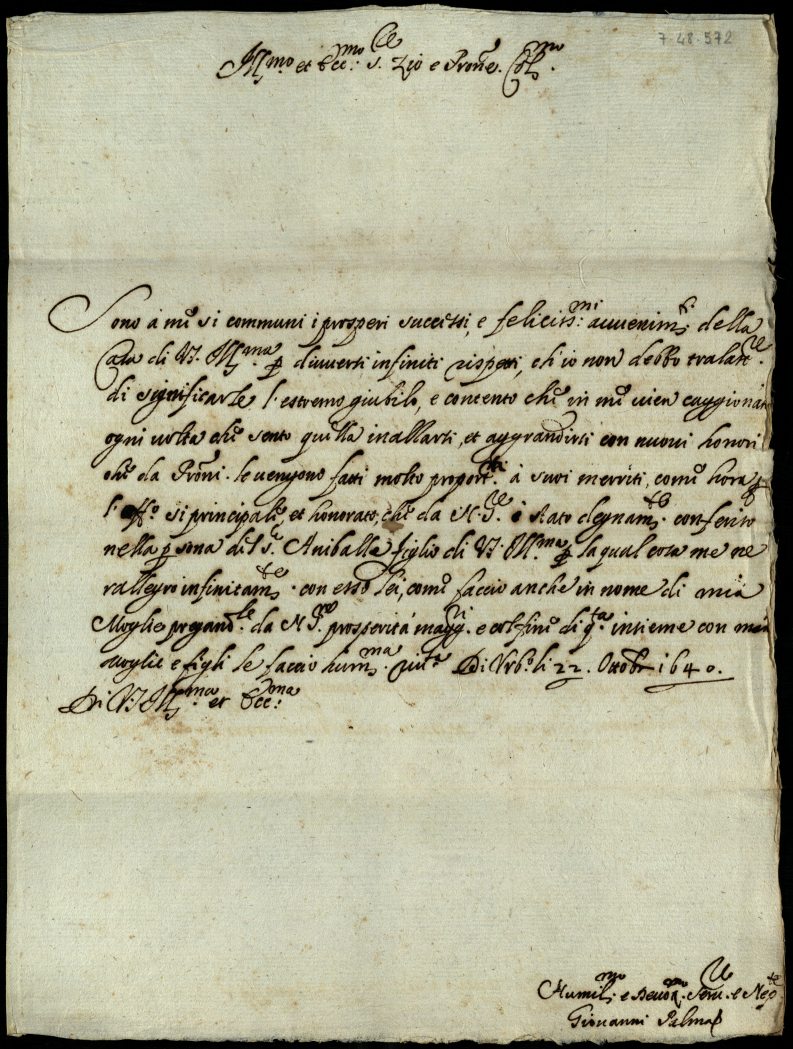 7-48-572
Ill.mo et Ecc.mo S.re Zio e Prone. Col.mo
Sono à me si communi i prosperi successi, e feliciss.mi auuenim.ti della
Casa di V.S. Ill.ma p diuersi infiniti rispetti, ch io non debbo tralasc.re
di significarle l'estremo giubilo, e contento che in me vien caggionato
ogni volta che sento quella inalzarsi, et aggrandirsi con nuoui honori
che da Proni. le uengono fatti molto proport.ti à suoi merriti, come hora p
l'Off.o si principale, et honorato, che da N. S.re è stato degnam.te conferito
nella psona del S.r Aniballe figlio di V.S. Ill.ma p la qual cosa me ne
rallegro infinitam.te con esso lei, come faccio anche in nome di mia
Moglie pregand.le da N. S. prosperità magg.ri e col fine di q.ta insieme con mia
moglie e figli le faccio hum.ma riu.a Di Urb.o li 22. Ottobr 1640.
Di V.S. Ill.ma et Ecc.ma
Humil.mo e Deuo.mo Seru.re e Nep.te
Giouanni Palma